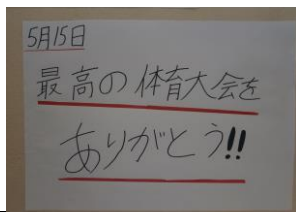 5月15日
最高の体育大会を
ありがとう!!